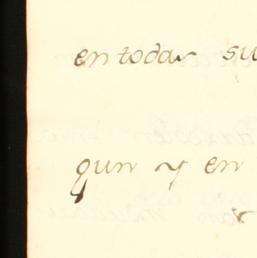 en todas su
gun y en